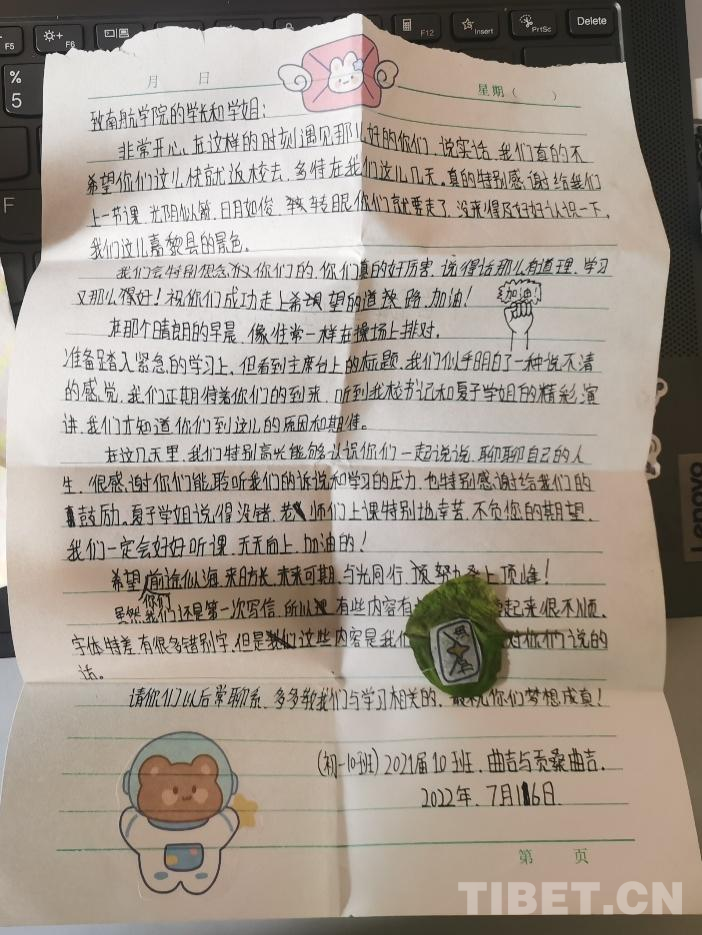 F5
F6
F12
Insert
PrtSc
Delete
%
5
F
月 日
星期( )
致南航学院的学长和学姐:
非常开心、在这样的时刻遇见那么好的你们,说实话,我们真的不
希望你们这么快就返校去,多待在我们这儿几天。真的特别感谢给我们
上一节课,光阴似箭,日月如俊,转眼你们就要走了,没来得及好好认识一下,
我们这儿嘉黎县的景色。
我们会特别想念你们的,你们真的好厉害,说得话那么有道理,学习
又那么得好!祝你们成功走上希望的道路,加油!
加油!
在那个晴朗的早晨,像往常一样在操场上排对。
准备踏入紧急的学习上,但看到主席台上的标题,我们似乎明白了一种说不清
的感觉,我们正期待着你们的到来,听到我校书记和夏子学姐的精彩演
讲,我们才知道你们到这儿的原因和期待。
在这几天里,我们特别高兴能够认识你们一起说说,聊聊自己的人
生,很感谢你们能聆听我们的诉说和学习的压力,也特别感谢给我们的
鼓励。夏子学姐说得没错,老师们上课特别地辛苦,不负您的期望,
我们一定会好好听课,天天向上,加油的!
希望你们前途似海,来日方长,未来可期,与光同行,顶努力登上顶峰!
虽然我们还是第一次写信,所以有些内容有 起来很不顺,
字体特差,有很多错别字,但是这些内容是我们 对你们说的
话。
请你们以后常聊系,多多教我们与学习相关的,最祝你们梦想成真!
(初一10班)2021届10班,曲吉与贡桑曲吉.
2022年,7月16日
第 页
Lenovo
TIBET.CN